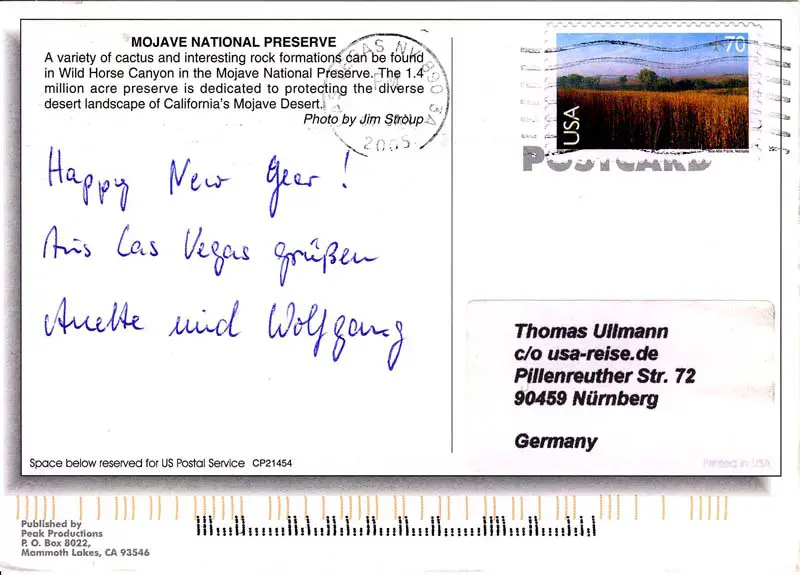 MOJAVE NATIONAL PRESERVE
A variety of cactus and interesting rock formations can be found
in Wild Horse Canyon in the Mojave National Preserve. The 1.4
million acre preserve is dedicated to protecting the diverse
desert landscape of California's Mojave Desert.
Photo by Jim Stroup
VEGAS NV 890
2005
70
USA
POSTCARD
Happy New Year!
Aus Las Vegas grüßen
Anette und Wolfgang
Thomas Ullmann
c/o usa-reise.de
Pillenreuther Str. 72
90459 Nürnberg
Germany
Space below reserved for US Postal Service CP21454
Printed in USA
Published by
Peak Productions
P. O. Box 8022,
Mammoth Lakes, CA 93546